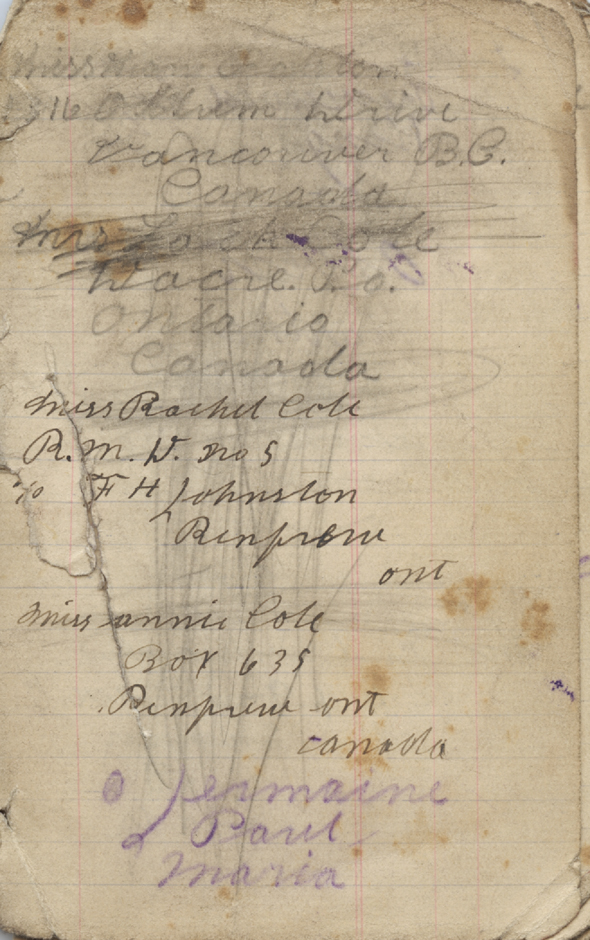 Miss
Drive
Vancouver B.C.
Canada
Mrs Zack Cole
Dacre. P.O.
Ontario
Canada
Miss Rachel Cole
R.M.D. no 5
c/o F H Johnston
Renfrew
ont
Miss annie Cole
Box 635
Renfrew ont
canada
Jermaine
Paul
Maria